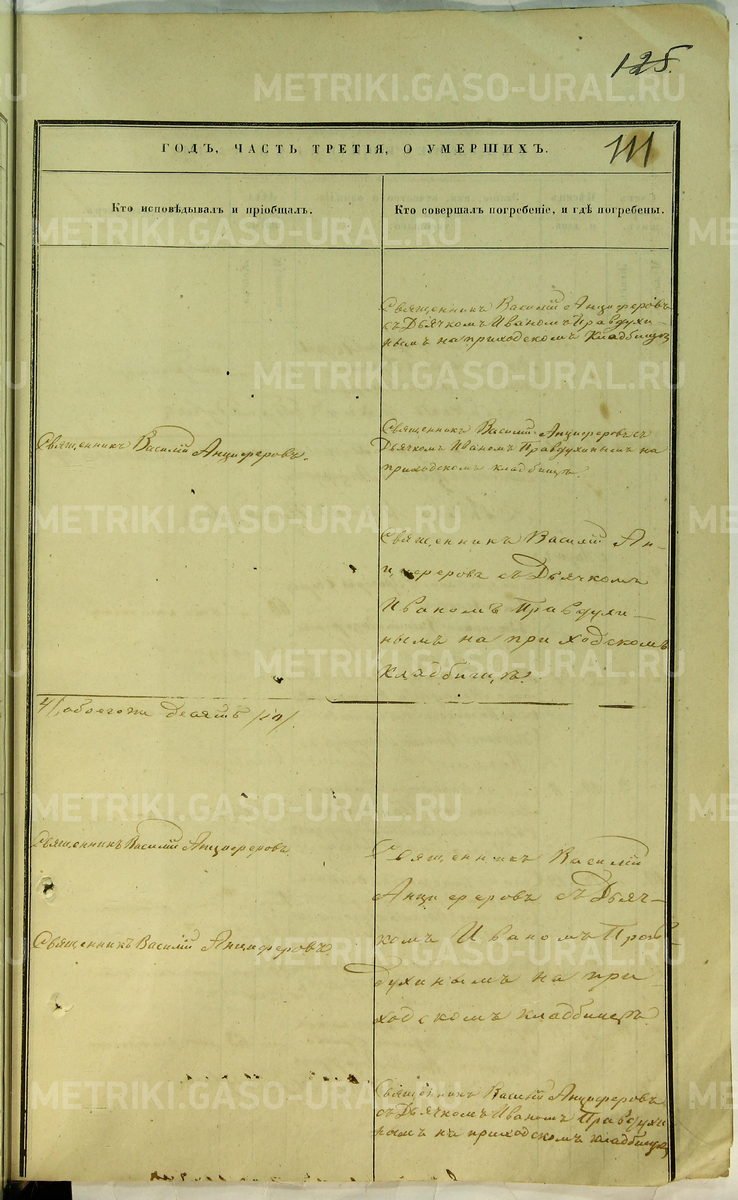 125.
ГОДЪ, ЧАСТЬ ТРЕТІЯ, О УМЕРШИХЪ.
111
Кто исповѣдывалъ и пріобщалъ.
Кто совершалъ погребеніе, и гдѣ погребены.
Священникъ Василій Анциферовъ
съ Дьячкомъ Иваномъ Правдухи-
нымъ на приходскомъ Кладбищѣ
Священникъ Василій Анциферовъ.
Священникъ Василій Анциферовъ съ
Дьячкомъ Иваномъ Правдухинымъ на
приходскомъ кладбищѣ.
Священникъ Василій Ан-
циферовъ съ Дьячкомъ
Иваномъ Правдухи-
нымъ на приходскомъ
Кладбищѣ.
4/, обоего десять /10/
Священникъ Василій Анциферовъ
Священникъ Василій Анциферовъ
Священникъ Василій
Анциферовъ съ Дьяч-
комъ Иваномъ Прав-
духинымъ на при-
ходскомъ кладбищѣ.
Священникъ Василій Анциферовъ
съ Дьячкомъ Иваномъ Правдухи
нымъ на приходскомъ кладбищѣ
METRIKI.GASO-URAL.RU